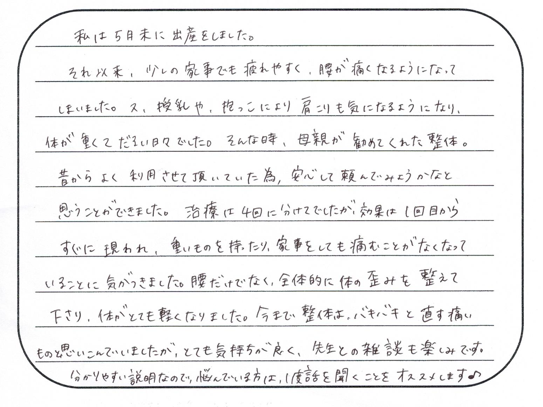 私は5月末に出産をしました。
それ以来、少しの家事でも疲れやすく、腰が痛くなるようになって
しまいました。又、授乳や、抱っこにより肩こりも気になるようになり、
体が重くてだるい日々でした。そんな時、母親が勧めてくれた整体。
昔からよく利用させて頂いていた為、安心して頼んでみようかなと
思うことができました。治療は4回に分けてでしたが、効果は1回目から
すぐに現われ、重いものを持ったり、家事をしても痛むことがなくなって
いることに気がつきました。腰だけでなく、全体的に体の歪みを整えて
下さり、体がとても軽くなりました。今まで整体は、バキバキと直す痛い
ものと思いこんでいましたが、とても気持ちが良く、先生との雑談も楽しみです。
分かりやすい説明なので、悩んでいる方は、1度話を聞くことをオススメします♪